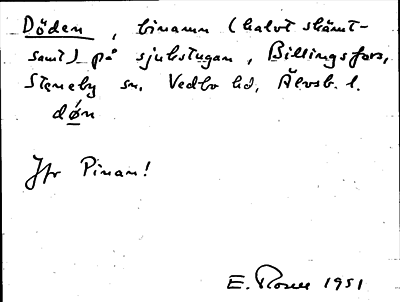 Döden, binamn (halvt skämt-
samt) på sjukstugan, Billingsfors,
Steneby sn. Vedbo hd, Älvsb. l.
døn
Jfr Pinan!
E. Rosell 1951